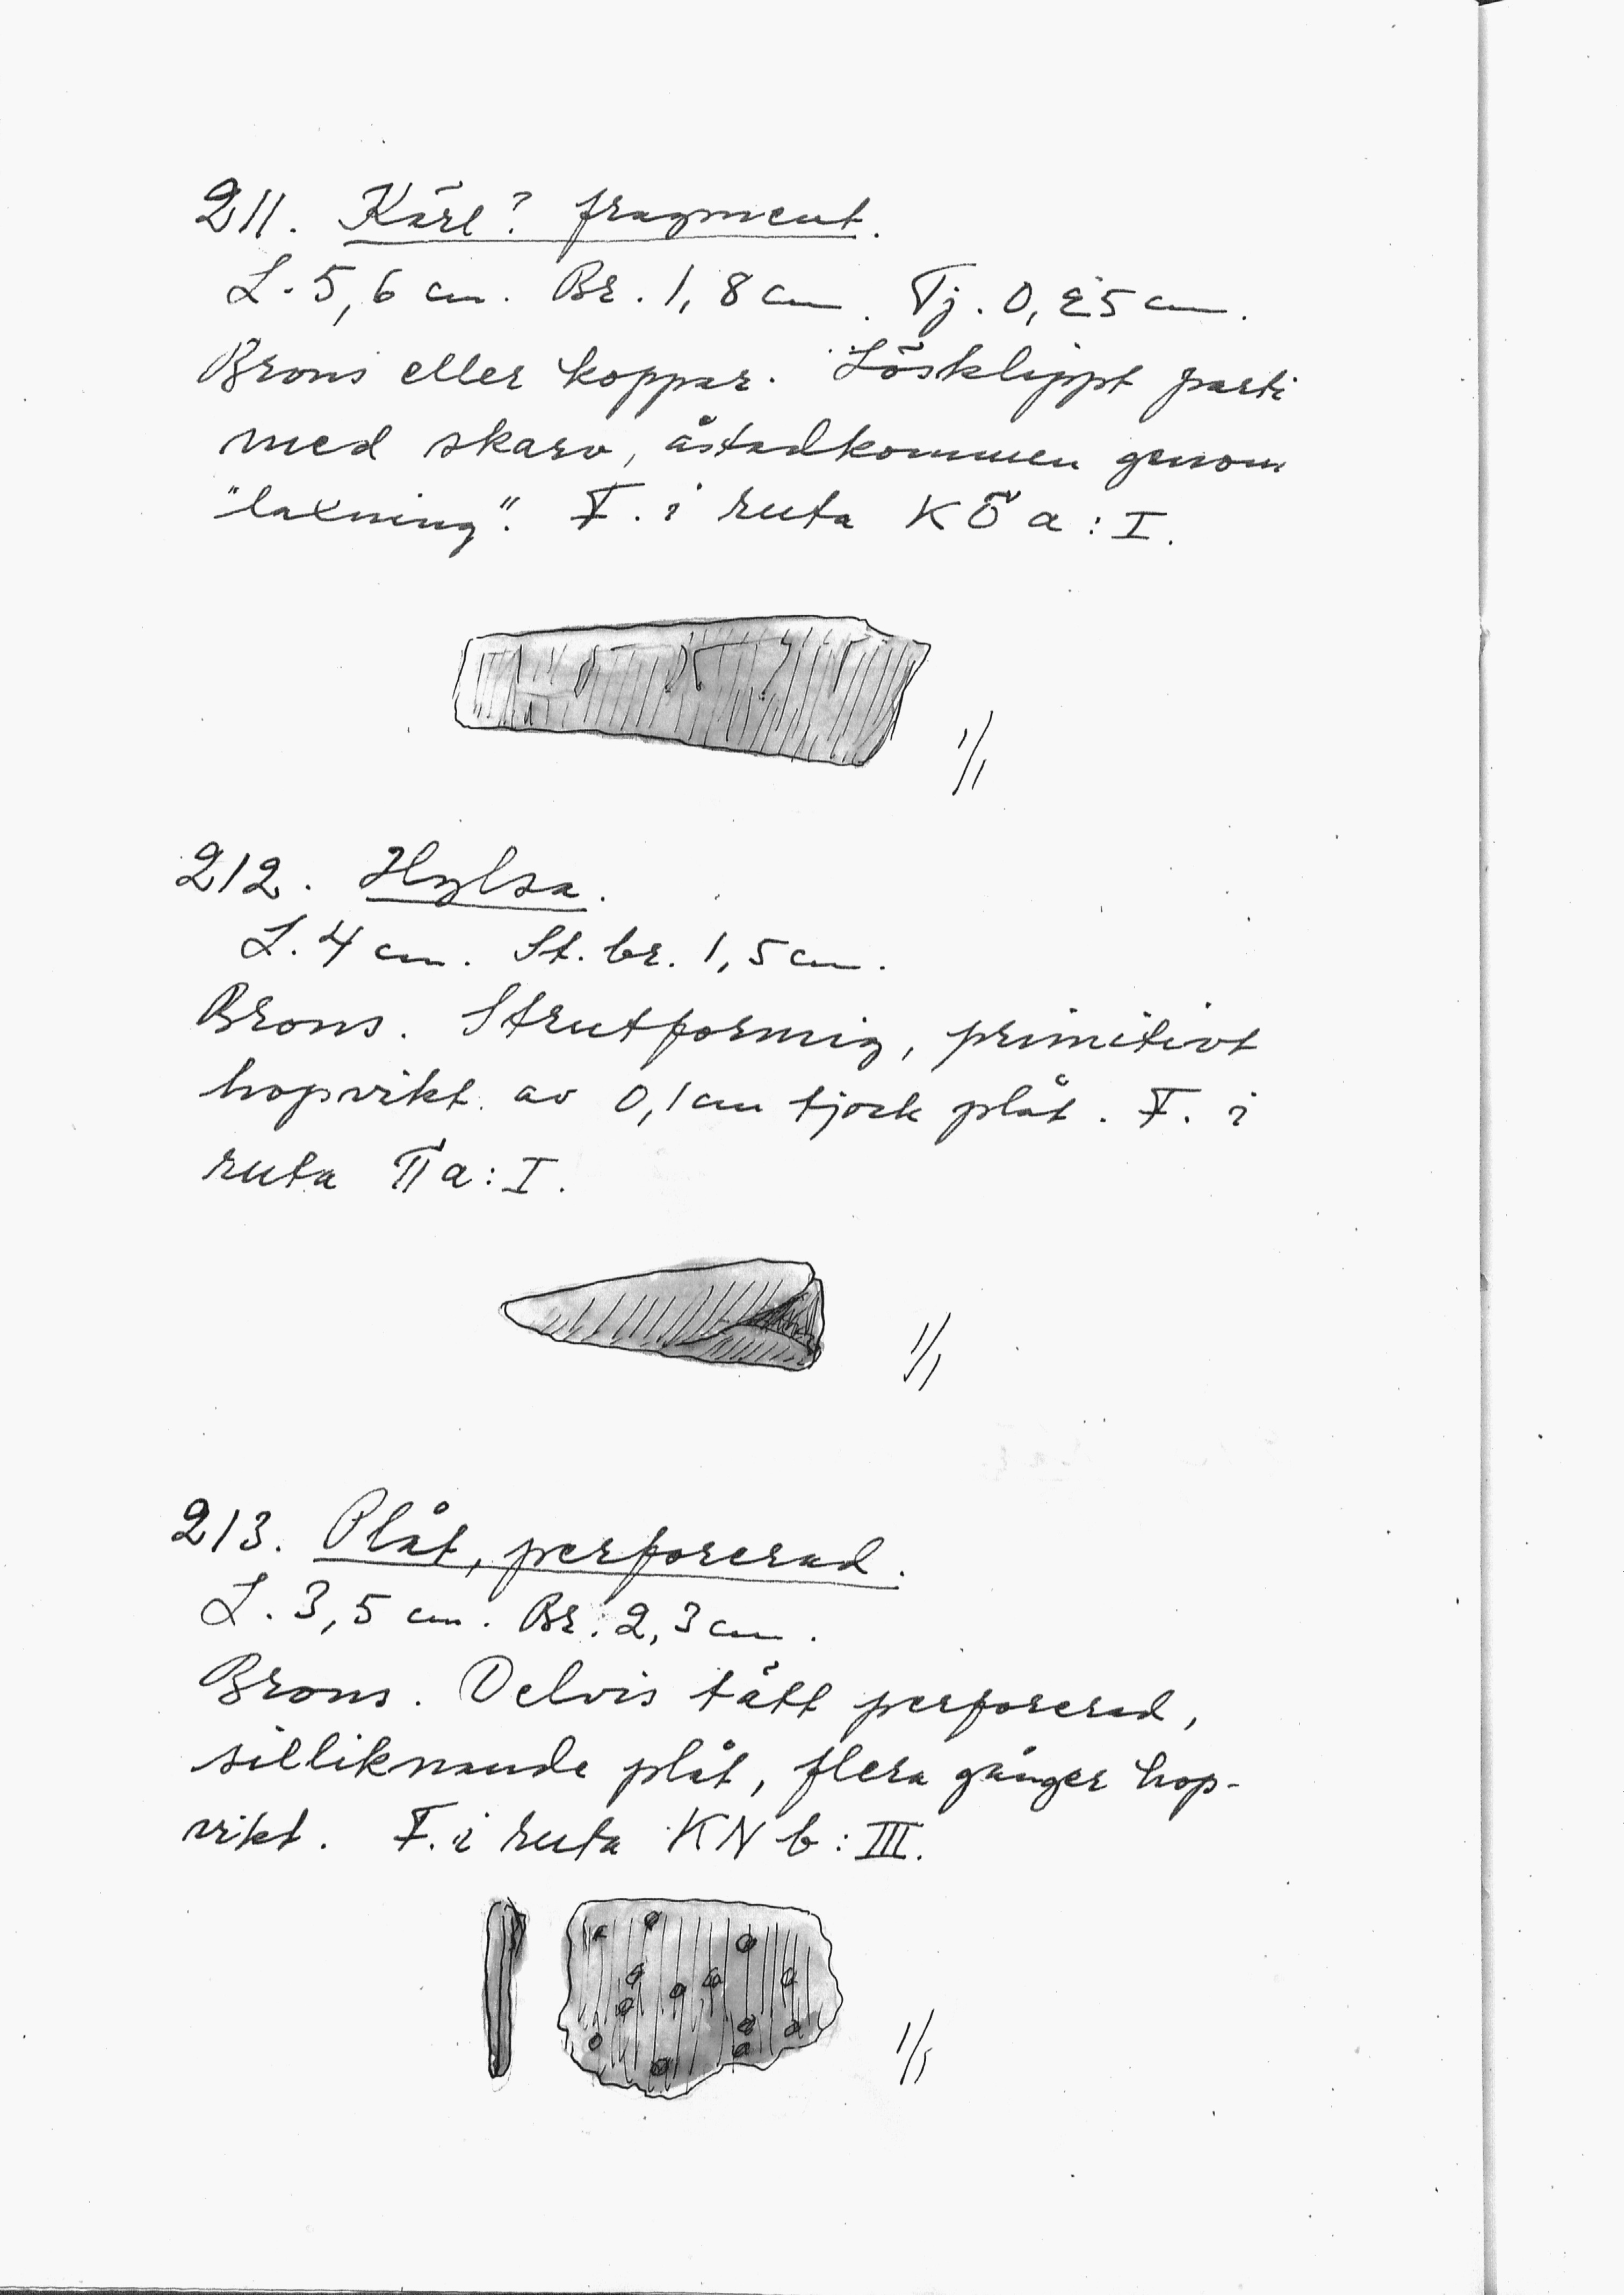 211. Kärl? fragment.
L. 5,6 cm. Br. 1,8 cm. Tj. 0,25 cm.
Brons eller koppar. Lösklippt parti
med skarv, åstadkommen genom
"laxning". F. i ruta KÖ a : I.
1/1
212. Hylsa.
L. 4 cm. St. br. 1,5 cm.
Brons. Strutformig, primitivt
hopvikt av 0,1 cm tjock plåt. F. i
ruta a : I.
1/1
213. Plåt, perforerad.
L. 3,5 cm. Br. 2,3 cm.
Brons. Delvis tätt perforerad,
silliknande plåt, flera gånger hop-
vikt. F. i ruta KN b : III.
1/1